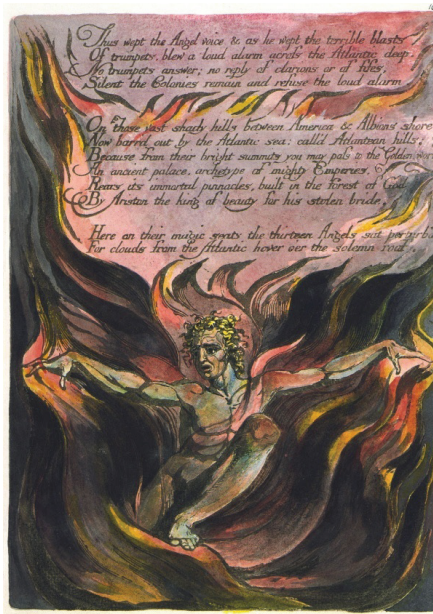 Thus wept the Angel voice & as he wept the terrible blasts
Of trumpets, blew a loud alarm across the Atlantic deep.
No trumpets answer; no reply of clarions or of fifes,
Silent the Colonies remain and refuse the loud alarm
On those vast shady hills between America & Albions shore;
Now barrd out by the Atlantic sea: calld Atlantean hills:
Because from their bright summits you may pass to the Golden world
An ancient palace, archetype of mighty Emperies,
Rears its immortal pinnacles, built in the forest of God
By Ariston the king of beauty for his stolen bride,
Here on their magic seats the thirteen Angels sat perturb'd
For clouds from the Atlantic hover oer the solemn roof.